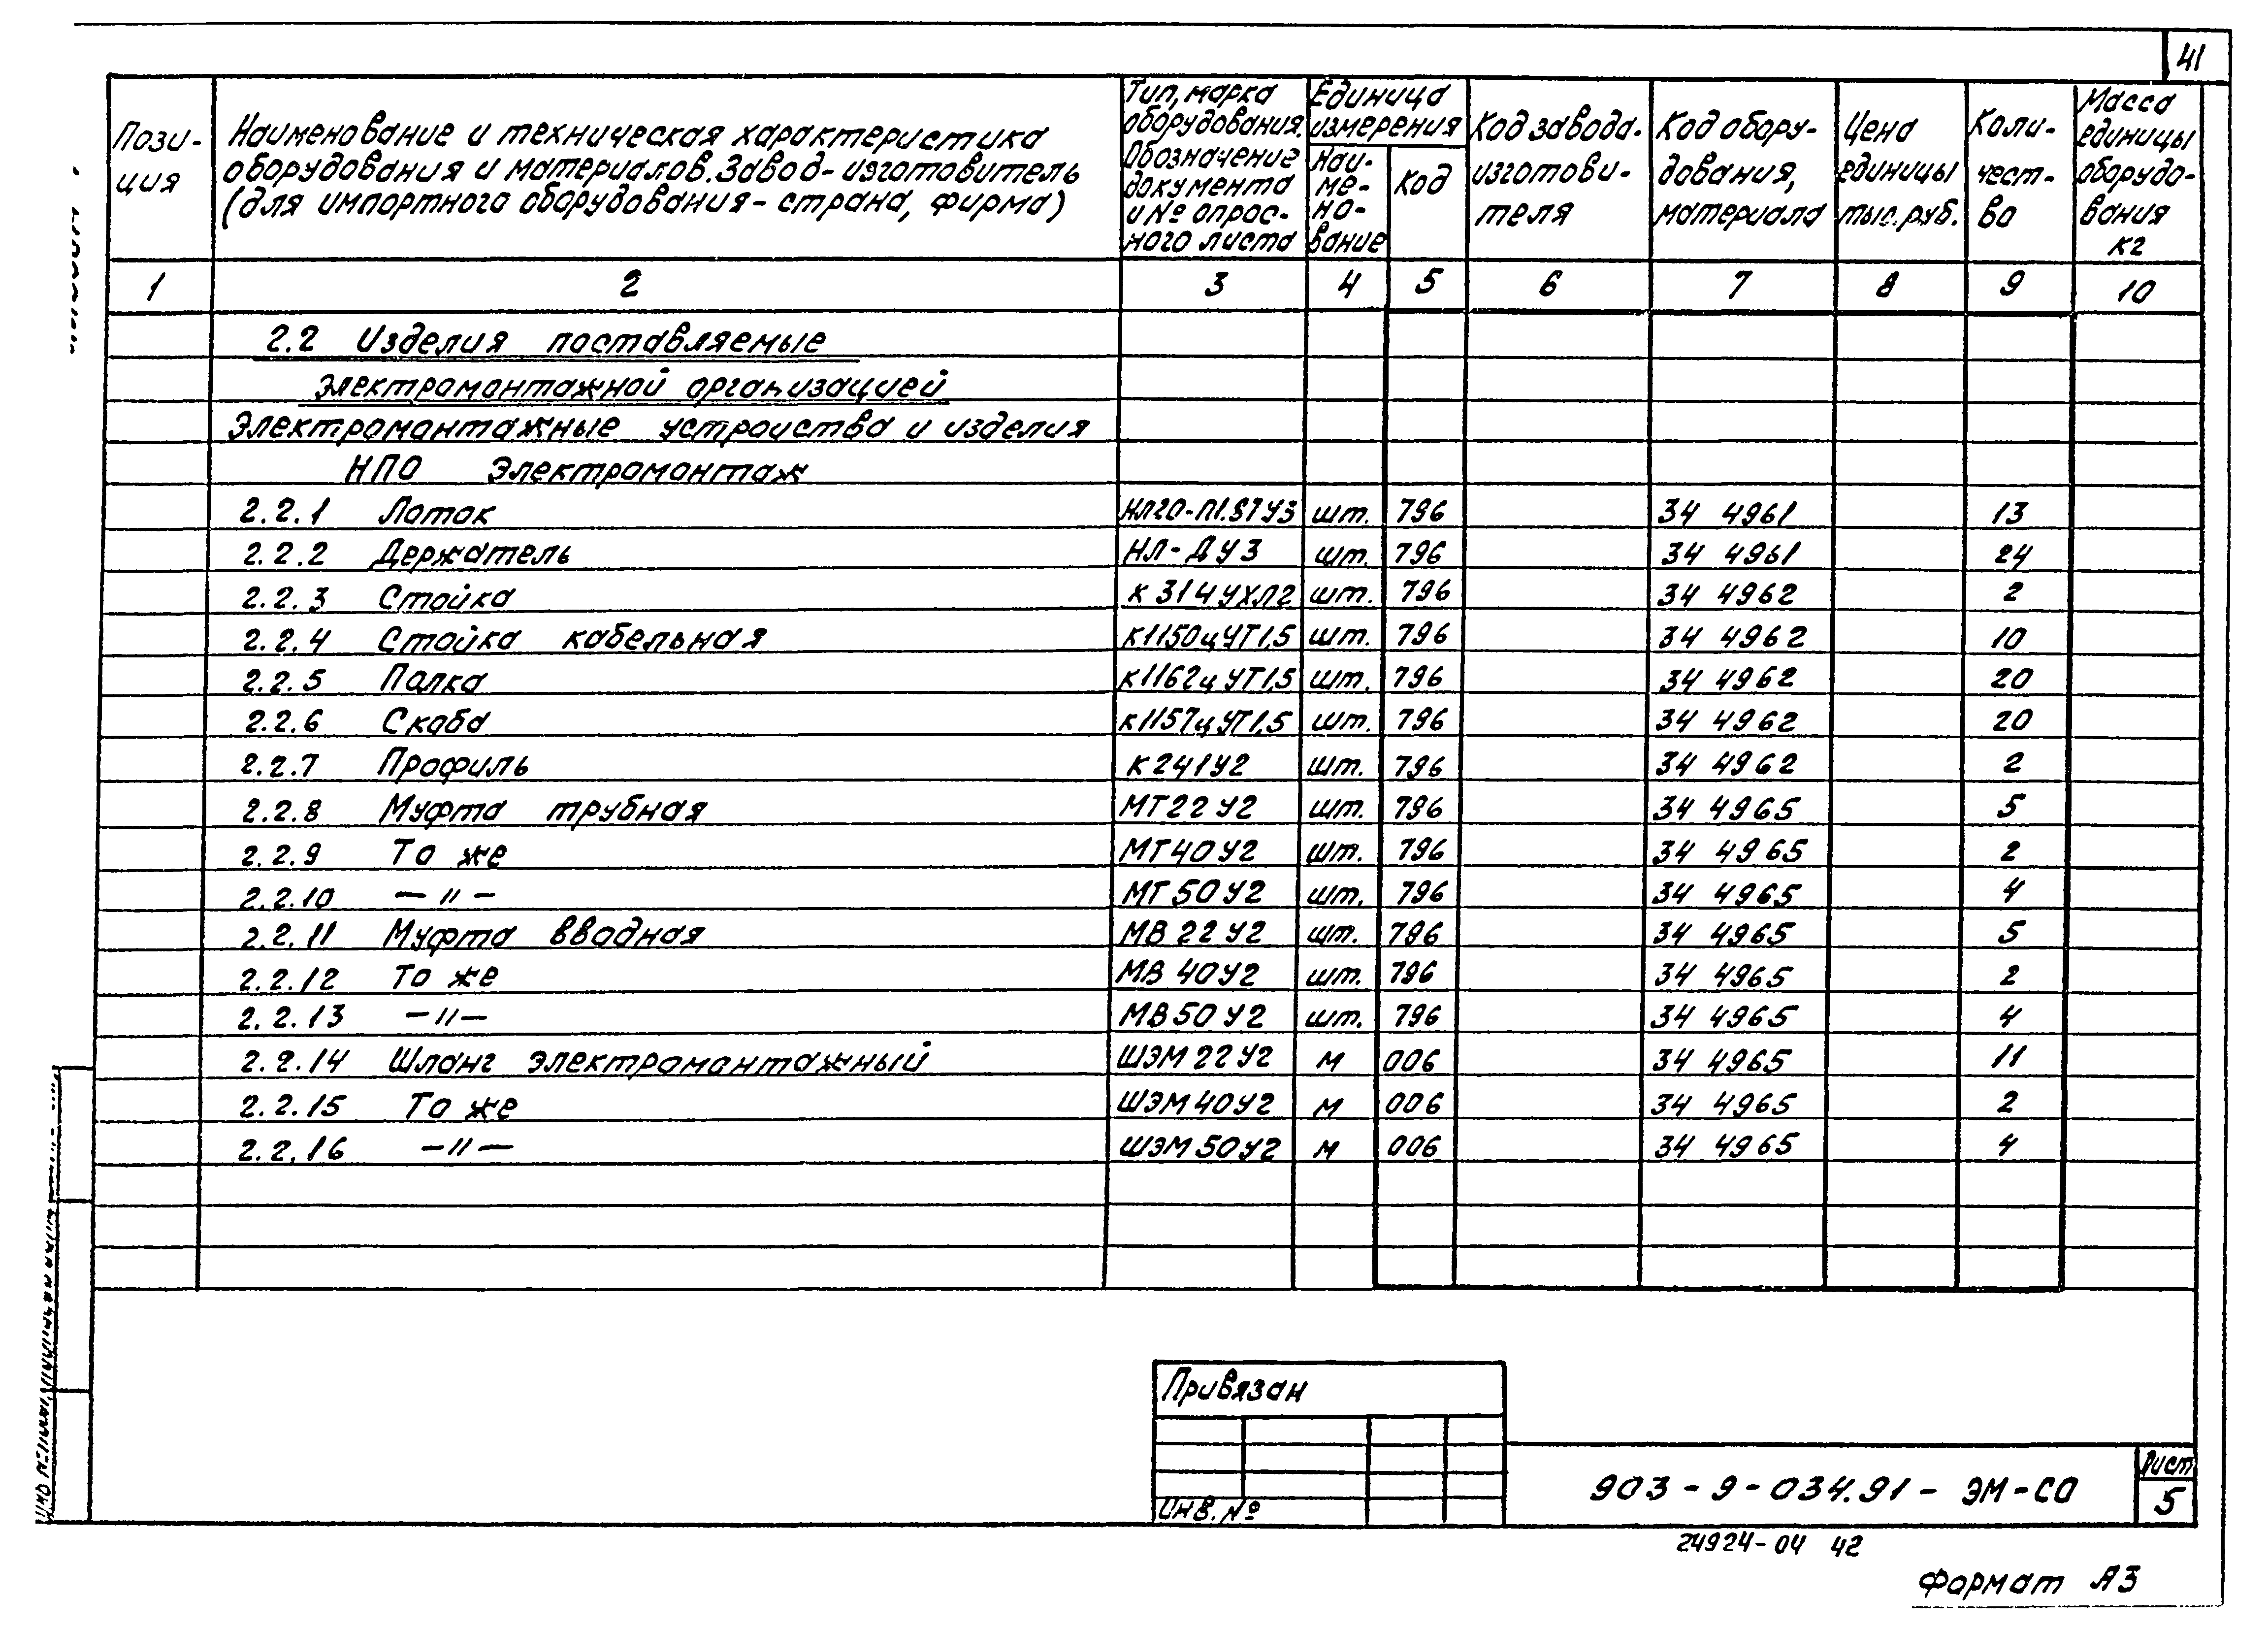 41
Пози-
ция
Наименование и техническая характеристика
оборудования и материалов. Завод-изготовитель
(для импортного оборудования - страна, фирма)
Тип, марка
оборудования.
Обозначение
документа
и № опрос-
ного листа
Единица
измерения
Наи-
ме-
но-
вание
Код
Код завода-
изготови-
теля
Код обору-
дования,
материала
Цена
единицы
тыс.руб.
Коли-
чест-
во
Масса
единицы
оборудо-
вания
кг
1 2 3 4 5 6 7 8 9 10
2.2 Изделия поставляемые
электромонтажной организацией
Электромонтажные устроиства и изделия
НПО Электромонтаж
2.2.1 Лоток НЛ20-П1.87У3 шт. 796 34 4961 13
2.2.2 Держатель НЛ-ДУ3 шт. 796 34 4961 24
2.2.3 Стойка К314УХЛ2 шт. 796 34 4962 2
2.2.4 Стойка кабельная К1150цУТ1,5 шт. 796 34 4962 10
2.2.5 Полка К1162цУТ1,5 шт. 796 34 4962 20
2.2.6 Скоба К1157цУТ1,5 шт. 796 34 4962 20
2.2.7 Профиль К241У2 шт. 796 34 4962 2
2.2.8 Муфта трубная МТ22У2 шт. 796 34 4965 5
2.2.9 То же МТ40У2 шт. 796 34 4965 2
2.2.10 —"— МТ50У2 шт. 796 34 4965 4
2.2.11 Муфта вводная МВ22У2 шт. 796 34 4965 5
2.2.12 То же МВ40У2 шт. 796 34 4965 2
2.2.13 —"— МВ50У2 шт. 796 34 4965 4
2.2.14 Шланг электромонтажный ШЭМ22У2 м 006 34 4965 11
2.2.15 То же ШЭМ40У2 м 006 34 4965 2
2.2.16 —"— ШЭМ50У2 м 006 34 4965 4
Привязан
Инв. №
903-9-034.91-ЭМ-СО
Лист
5
24924-04 42
Формат А3